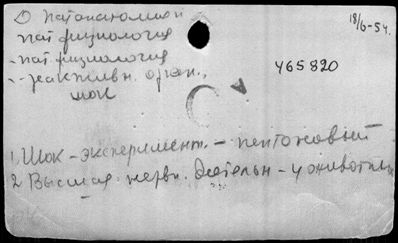 ① Патанатомия и
пат физиология
- пат. физиология
- реактивн. орган.,
шок
18/6-54.
465820
1, Шок - эксперимент. - пептоновый
2 Высшая нервн. деятельн - у животных